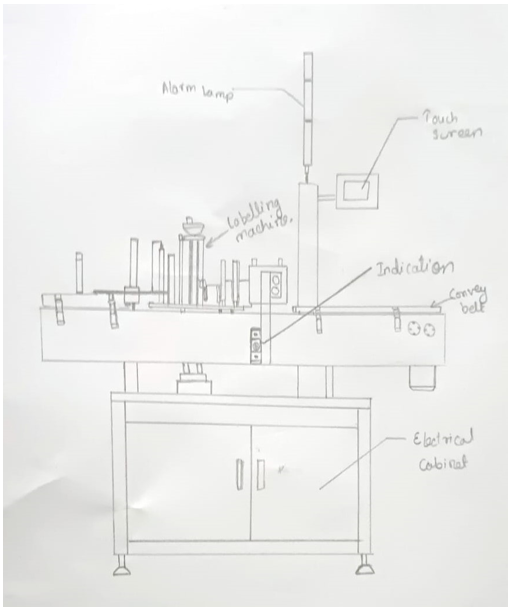 Alarm lamp
Touch
screen
Labelling
machine.
Indication
Convey
belt
Electrical
Cabinet